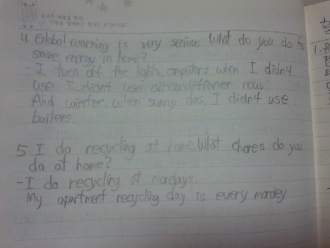 4. Global warming is very serious. What do you do to
save energy in home?
- I turn off the lights, computers when I didn4
use. I didn4 use airconditioner now.
And winter, when sunny das, I didn4 use
boilers.
5. I do recycling at home. What chores do you
do at home?
- I do recycling at mondays.
My apartment recycling day is every monday